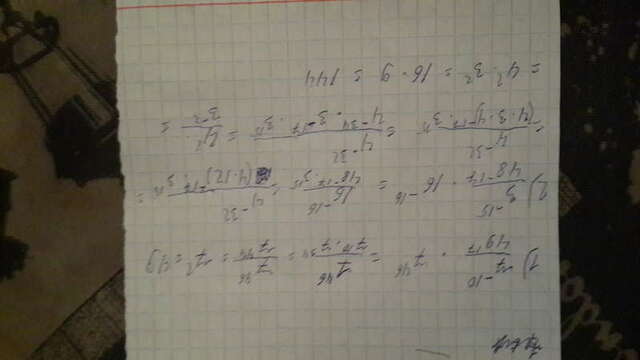 1) \frac{7^{-10}}{49^{17}} \cdot 7^{46} = \frac{7^{46}}{7^{10} \cdot 7^{34}} = \frac{7^{46}}{7^{44}} = 7^2 = 49
2) \frac{3^{-15}}{48^{-17}} \cdot 16^{-16} = \frac{16^{-16}}{48^{-17} \cdot 3^{15}} = \frac{4^{-32}}{(4 \cdot 12)^{-17} \cdot 3^{15}} =
= \frac{4^{-32}}{(4 \cdot 3 \cdot 4)^{-17} \cdot 3^{15}} = \frac{4^{-32}}{4^{-34} \cdot 3^{-17} \cdot 3^{15}} = \frac{4^2}{3^{-2}} =
= 4^2 \cdot 3^2 = 16 \cdot 9 = 144